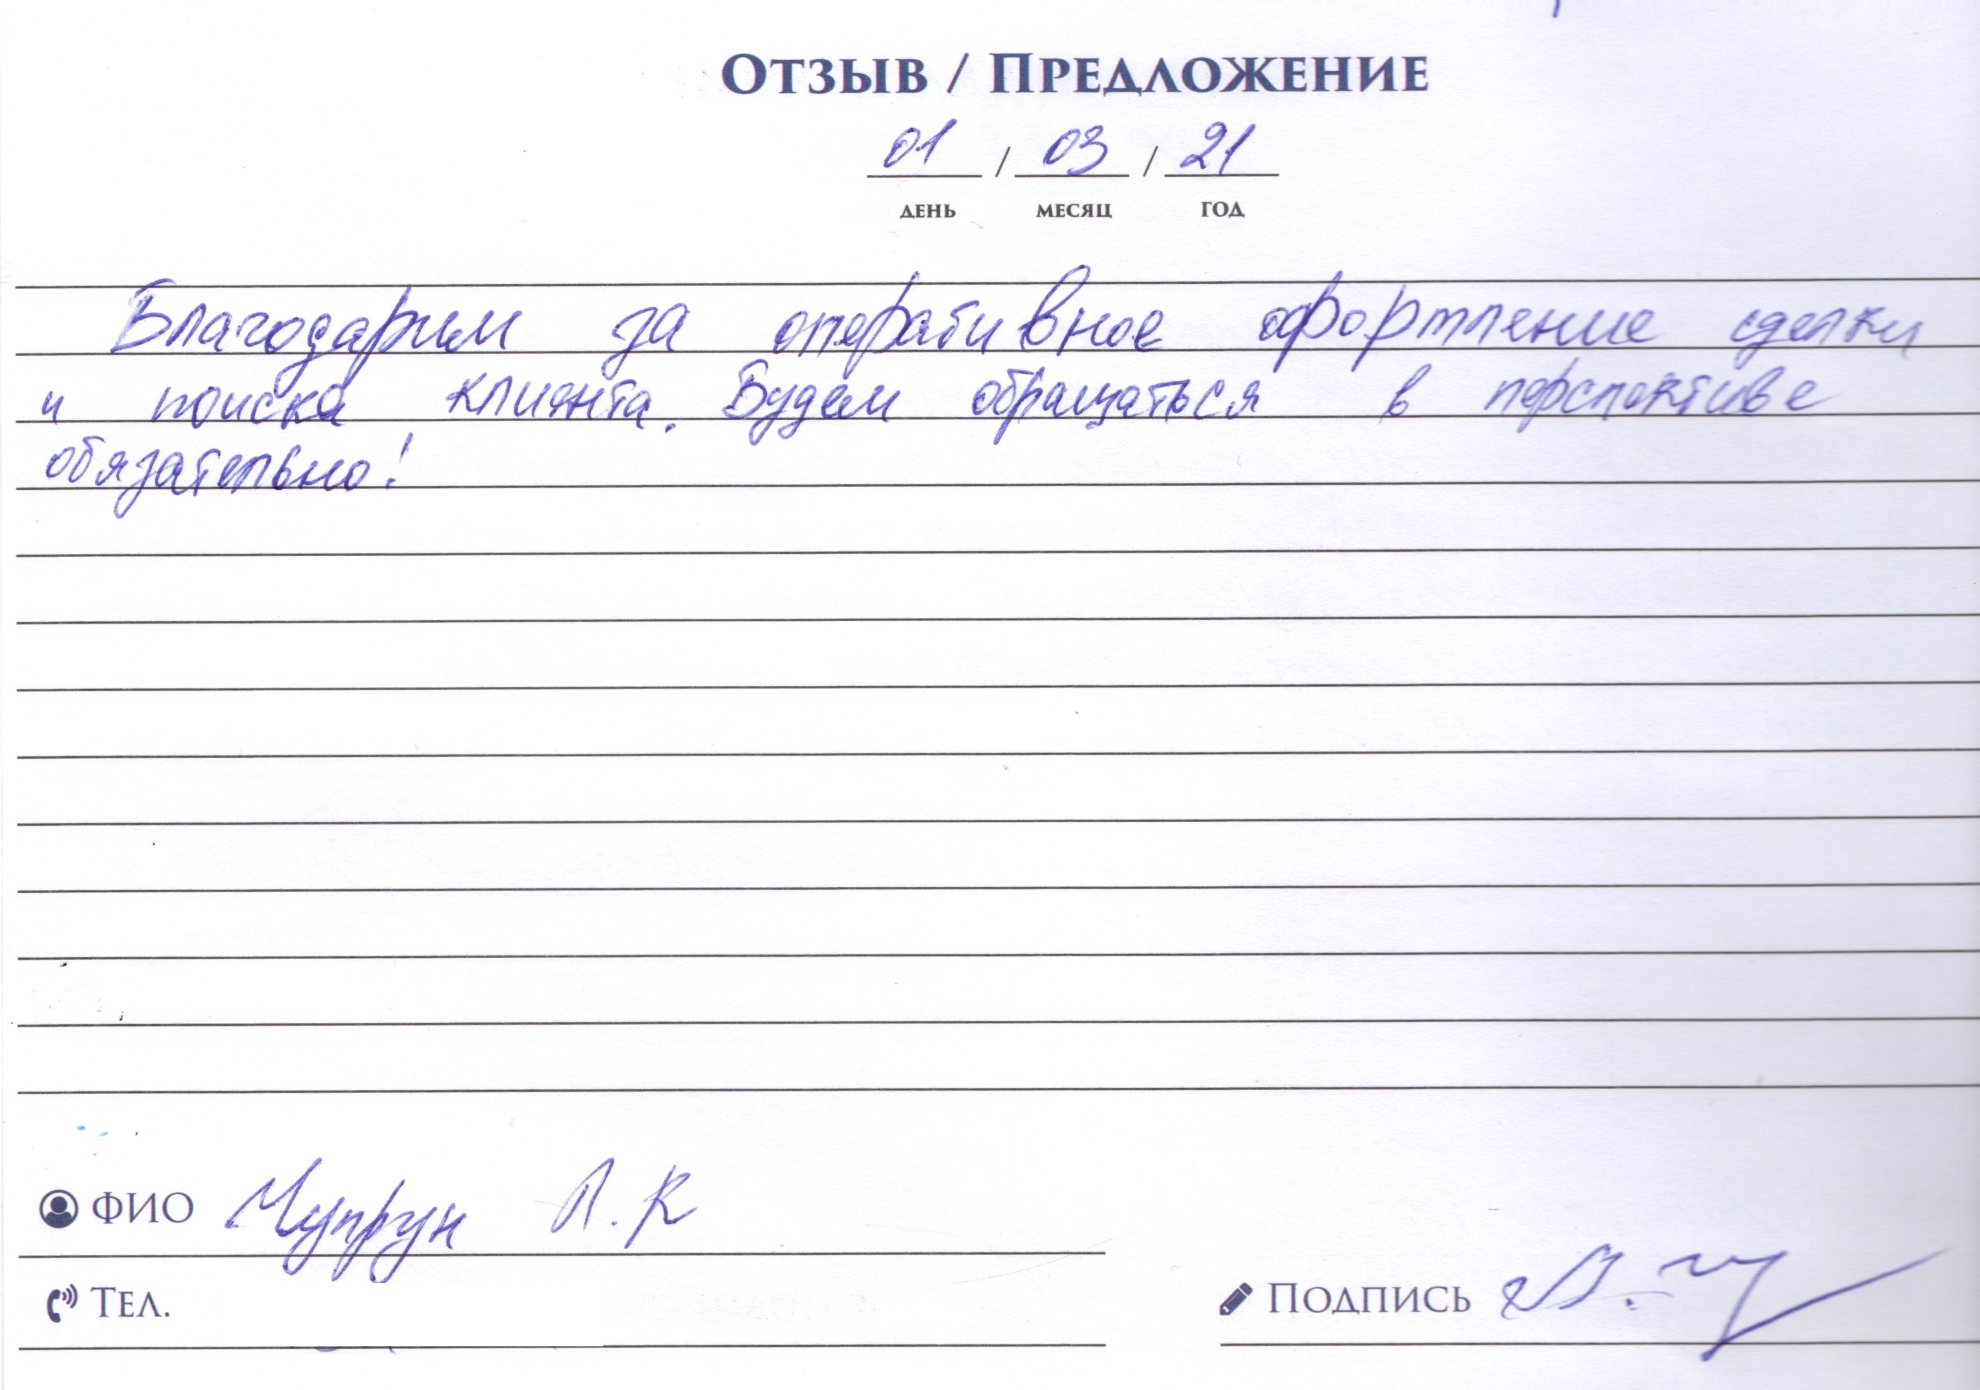 Отзыв / Предложение
01 / 03 / 21
день месяц год
Благодарим за оперативное оформление сделки
и поиска клиента. Будем обращаться в перспективе
обязательно!
ФИО Чупрун Л. К
Тел.
Подпись